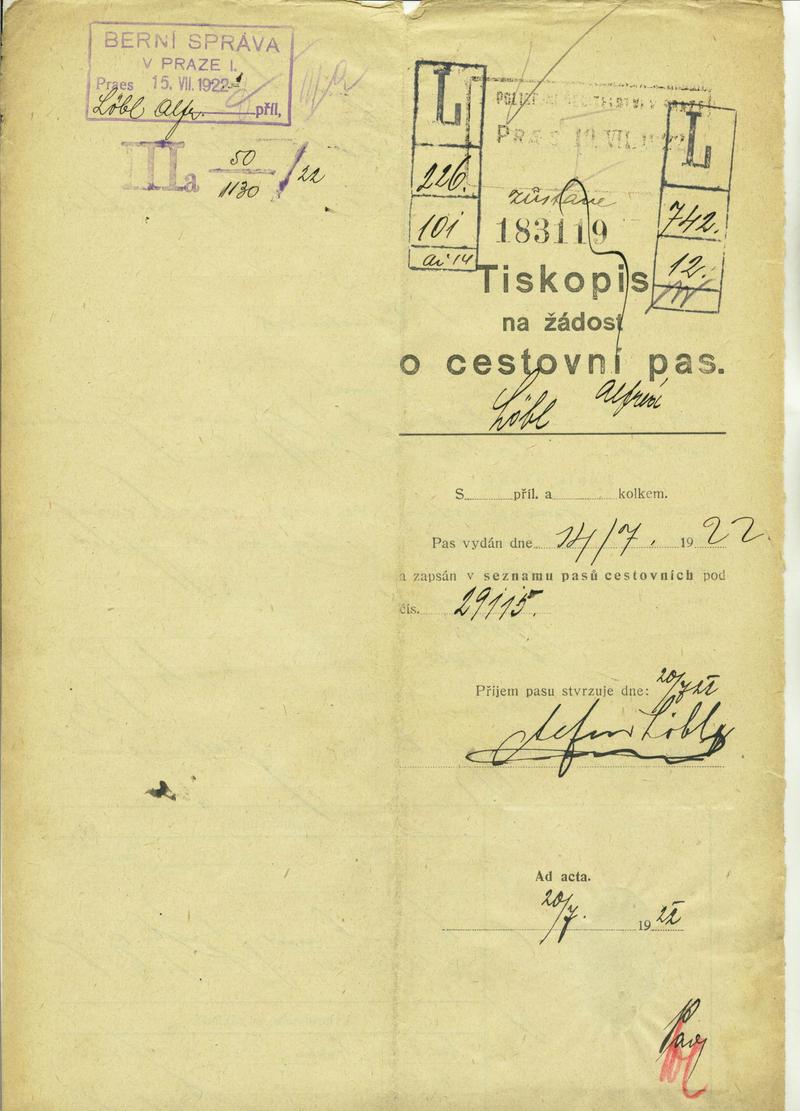 BERNÍ SPRÁVA
V PRAZE I.
Praes 15. VII. 1922
Löbl Alfr. příl.
IIIa 50/1130/22
L
226.
101
POLICEJNÍ ŘEDITELSTVÍ V PRAZE
PRAES VII. 1922
zůstane
183119
L
742.
12.
Tiskopis
na žádost
o cestovní pas.
Löbl Alfred
S příl. a kolkem.
Pas vydán dne 14/7. 1922.
a zapsán v seznamu pasů cestovních pod
čís. 29115.
Příjem pasu stvrzuje dne: 20/7 22
Alfred Löbl
Ad acta.
20/7. 1922